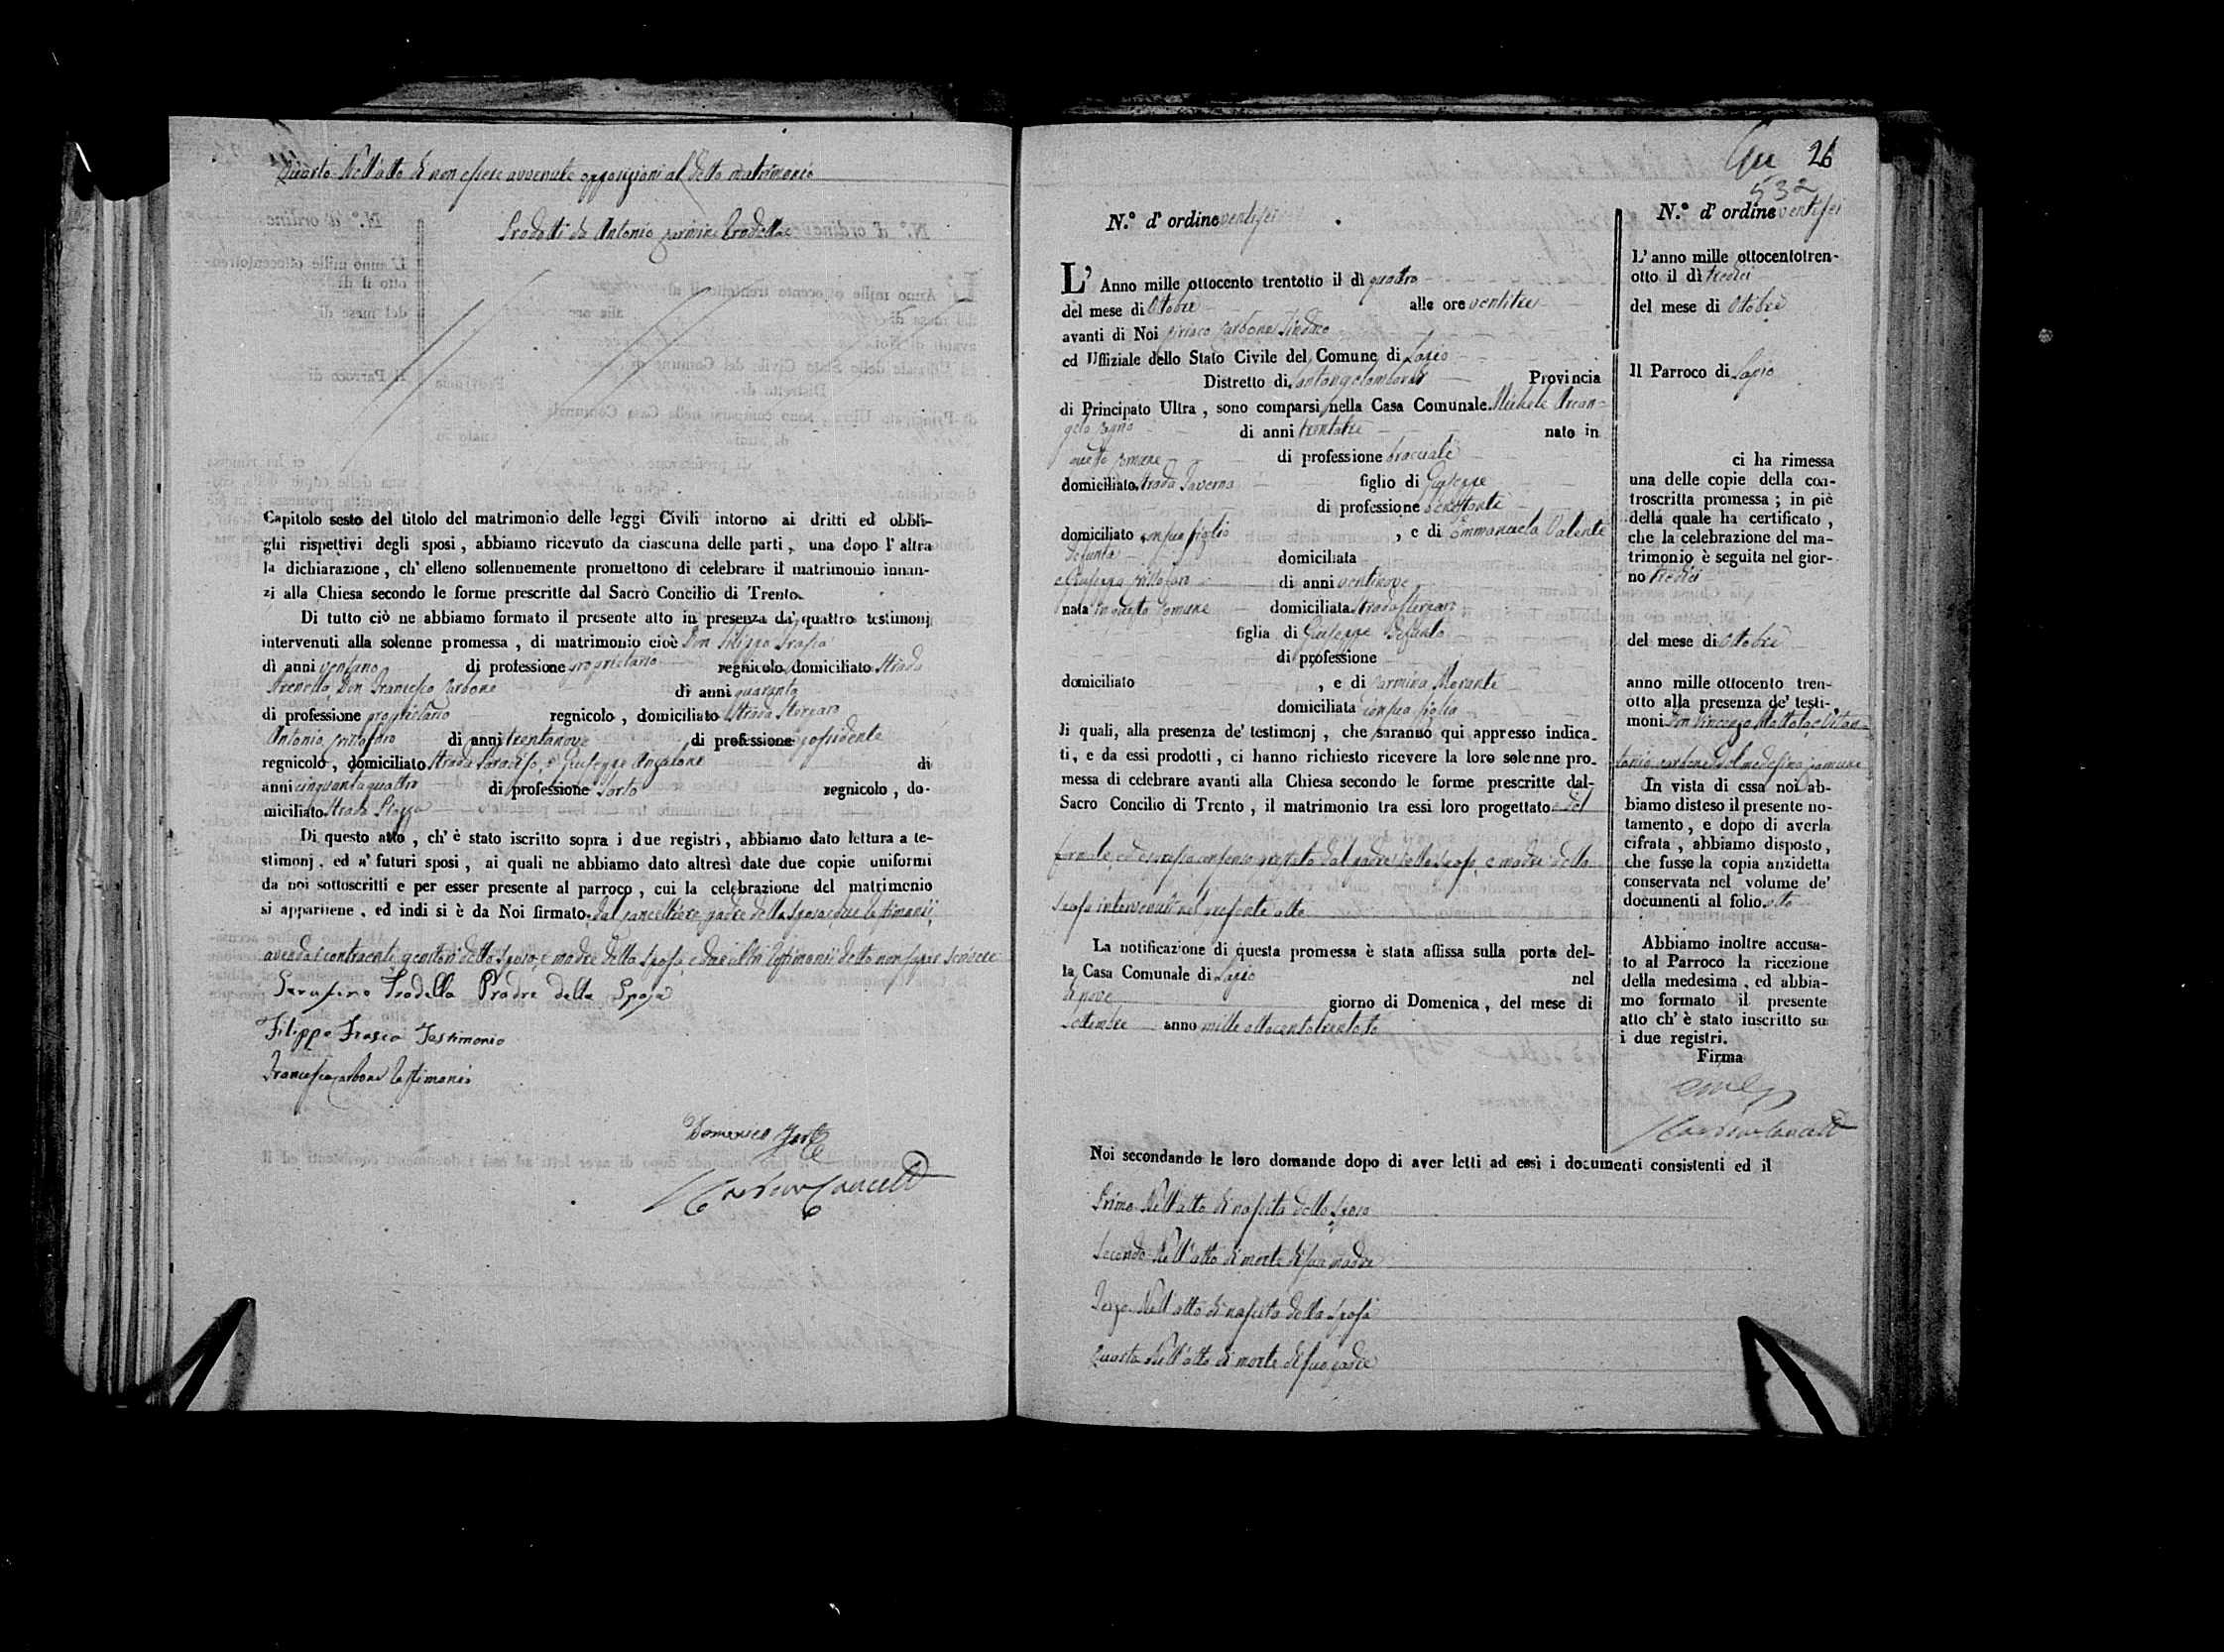 Quarto Dell'atto di non essere avvenute opposizioni al detto matrimonio
Prodotti da Antonio Carmine Trodella
Capitolo sesto del titolo del matrimonio delle leggi Civili intorno ai dritti ed obbli-
ghi rispettivi degli sposi, abbiamo ricevuto da ciascuna delle parti, una dopo l'altra
la dichiarazione, ch'elleno sollennemente promettono di celebrare il matrimonio innan-
zi alla Chiesa secondo le forme prescritte dal Sacro Concilio di Trento.
Di tutto ciò ne abbiamo formato il presente atto in presenza da' quattro testimonj
intervenuti alla solenne promessa, di matrimonio cioè Don Filippo Frasca
di anni ventuno di professione proprietario regnicolo, domiciliato Strada
Don Francesco Carbone di anni quaranta
di professione proprietario regnicolo, domiciliato Strada
Antonio di anni trentanove di professione possidente
regnicolo, domiciliato Strada Paradiso, e Giuseppe Anzalone di
anni cinquantaquattro di professione Sarto regnicolo, do-
miciliato Strada Piazza
Di questo atto, ch'è stato iscritto sopra i due registri, abbiamo dato lettura a te-
stimonj, ed a' futuri sposi, ai quali ne abbiamo dato altresì date due copie uniformi
da noi sottoscritti e per esser presente al parroco, cui la celebrazione del matrimonio
si appartiene, ed indi si è da Noi firmato, dal cancelliere, padre della Sposa e due testimonii,
avendo i contraenti, genitori dello Sposo, e madre della Sposa, e due altri testimonii detto non saper scrivere
Serafino Trodella Pradre della Sposa
Filippo Frasca Testimonio
Francesco Carbone testimonio
Domenico
26
532
N.° d'ordine ventisei
L'Anno mille ottocento trentotto il dì quattro
del mese di Ottobre alle ore ventitre
avanti di Noi Ciriaco Carbone Sindaco
ed Uffiziale dello Stato Civile del Comune di Lapio
Distretto di Santangelolombardi Provincia
di Principato Ultra, sono comparsi nella Casa Comunale Michele Arcan-
gelo di anni trentatre nato in
questo Comune di professione bracciale
domiciliato Strada Taverna figlio di Giuseppe
di professione
domiciliato con suo figlio, e di Emmanuela Valente
defunta domiciliata
e Giuseppa di anni ventinove
nata in questo Comune domiciliata Strada
figlia di Giuseppe Defunto
di professione
domiciliato, e di Carmina Morante
domiciliata con sua figlia
Ii quali, alla presenza de' testimonj, che saranno qui appresso indica-
ti, e da essi prodotti, ci hanno richiesto ricevere la loro solenne pro-
messa di celebrare avanti alla Chiesa secondo le forme prescritte dal-
Sacro Concilio di Trento, il matrimonio tra essi loro progettato del
formale, ed espresso consenso prestato dal padre dello Sposo, e madre della
Sposa intervenuti nel presente atto
La notificazione di questa promessa è stata affissa sulla porta del-
la Casa Comunale di Lapio nel
dì nove giorno di Domenica, del mese di
Settembre anno mille ottocentotrentotto
Noi secondando le loro domande dopo di aver letti ad essi i documenti consistenti ed il
Primo Dell'atto di nascita dello Sposo
Secondo Dell'atto di morte di sua madre
Terzo Dell'atto di nascita della Sposa
Quarto Dell'atto di morte di suo padre
N.° d'ordine ventisei
L'anno mille ottocentotren-
otto il dì tredici
del mese di Ottobre
Il Parroco di Lapio
ci ha rimessa
una delle copie della con-
troscritta promessa; in piè
della quale ha certificato,
che la celebrazione del ma-
trimonio è seguita nel gior-
no tredici
del mese di Ottobre
anno mille ottocento tren-
otto alla presenza de' testi-
moni Don Vincenzo Mattola, e Vitan-
tonio Carbone del medesimo Comune
In vista di essa noi ab-
biamo disteso il presente no-
tamento, e dopo di averla
cifrata, abbiamo disposto,
che fusse la copia anzidetta
conservata nel volume de'
documenti al folio otto
Abbiamo inoltre accusa-
to al Parroco la ricezione
della medesima, ed abbia-
mo formato il presente
atto ch'è stato inscritto su
i due registri.
Firma